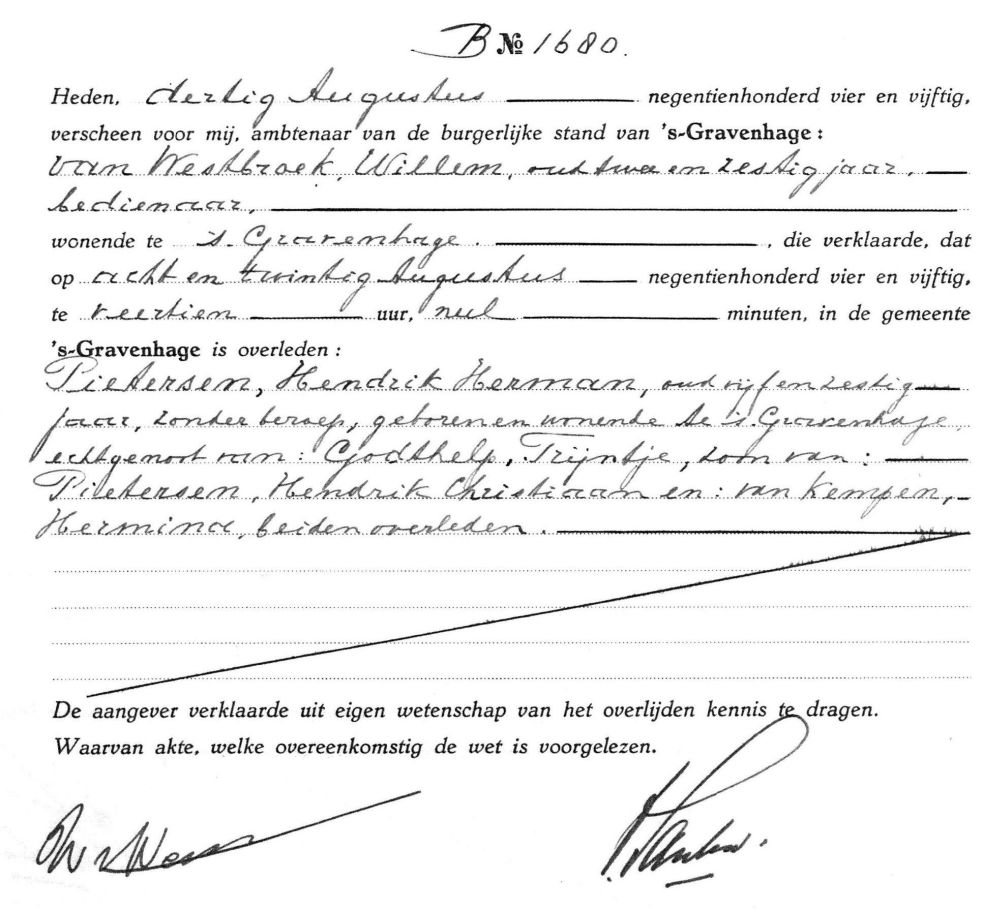 B № 1680.
Heden, dertig Augustus negentienhonderd vier en vijftig,
verscheen voor mij, ambtenaar van de burgerlijke stand van 's-Gravenhage:
van Westbroek, Willem, oud twee en zestig jaar,
bedienaar,
wonende te 's-Gravenhage, die verklaarde, dat
op acht en twintig Augustus negentienhonderd vier en vijftig,
te veertien uur, nul minuten, in de gemeente
's-Gravenhage is overleden:
Pietersen, Hendrik Herman, oud vijf en zestig
jaar, zonder beroep, geboren en wonende te 's-Gravenhage,
echtgenoot van: Godthelp, Trijntje, zoon van:
Pietersen, Hendrik Christiaan en: van Kempen,
Hermina, beiden overleden.
De aangever verklaarde uit eigen wetenschap van het overlijden kennis te dragen.
Waarvan akte, welke overeenkomstig de wet is voorgelezen.